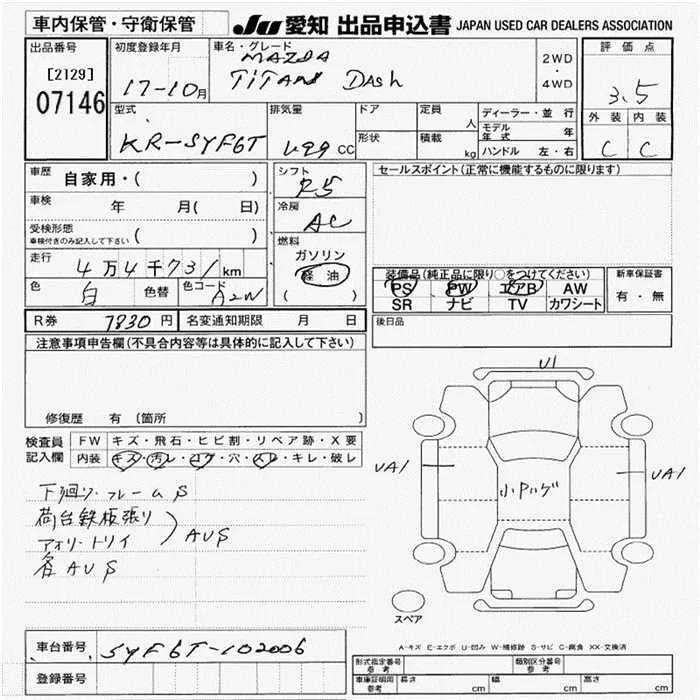 車内保管・守衛保管
JU 愛知 出品申込書 JAPAN USED CAR DEALERS ASSOCIATION
出品番号
[2129]
07146
初度登録年月
17-10月
車名・グレード
MAZDA
TITAN DASH
2WD
・
4WD
評価点
3.5
外装 内装
C C
型式
KR-SYF6T
排気量
cc
ドア
形状
定員
人
積載
kg
ディーラー・並行
モデル年式 年
ハンドル 左・右
車歴
自家用・( )
車検
年 月( 日)
受検形態
車検付きのみ記入して下さい ( )
走行
4万4千731km
色
白
色替
色コード
A2W
シフト
F5
冷房
AC
燃料
ガソリン
軽油
( )
セールスポイント(正常に機能するものに限ります)
装備品(純正品に限り○をつけてください)
PS PW エアB AW
SR ナビ TV カワシート
新車保証書
有・無
後日品
R券 7830円
名変通知期限 月 日
注意事項申告欄(不具合内容等は具体的に記入して下さい)
修復歴 有 (箇所
検査員
記入欄
FW キズ・飛石・ヒビ割・リペア跡・X要
内装 キズ・汚レ・コゲ・穴・スレ・キレ・破レ
下廻り・フレームS
荷台鉄板張り
アオリ・トリイ
AUS
各AUS
U1
UA1
UA1
小Pハゲ
スペア
A-キズ E-エクボ U-凹み W-補修跡 S-サビ C-腐食 XX-交換済
車台番号
SYF6T-102006
登録番号
形式指定番号
参考
類別区分番号
参考
車庫証明用
参考
長さ cm
幅 cm
高さ cm